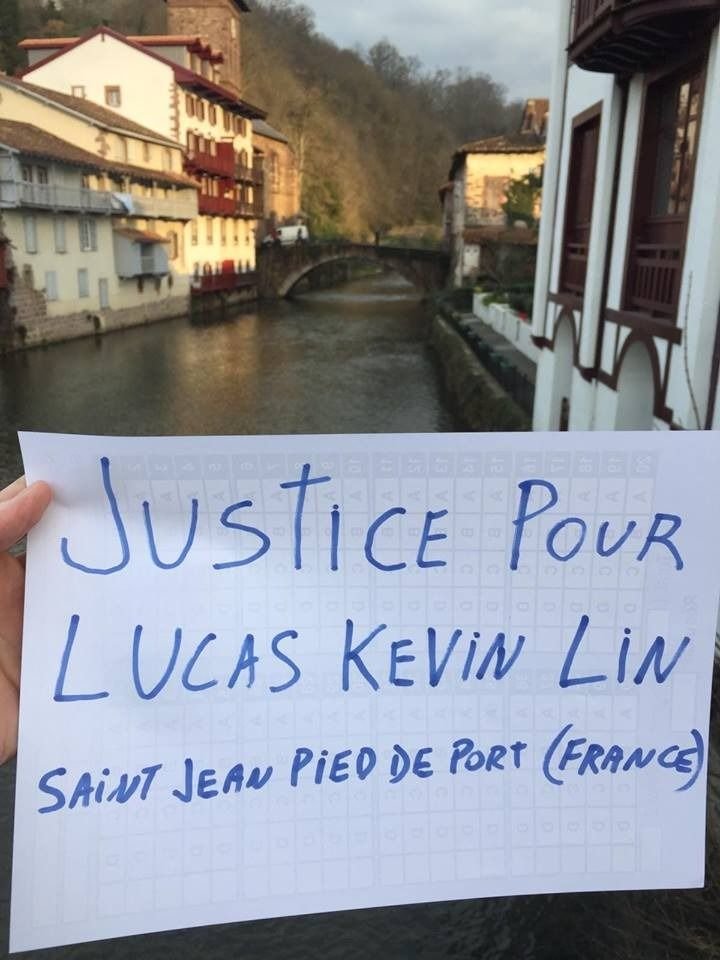 JUSTICE POUR
LUCAS KEVIN LIN
SAINT JEAN PIED DE PORT (FRANCE)